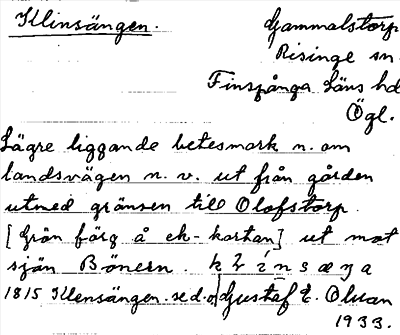 Klinsängen.
Gammalstorp
Risinge sn
Finspånga Läns hd
Ögl.
Lägre liggande betesmark n. om
landsvägen n. v. ut från gården
utmed gränsen till Olofstorp.
[Grön färg å ek-kartan] ut mot
sjön Bönern.
1815 Klensängen. se d. o/ Gustaf E. Olsson
1933.